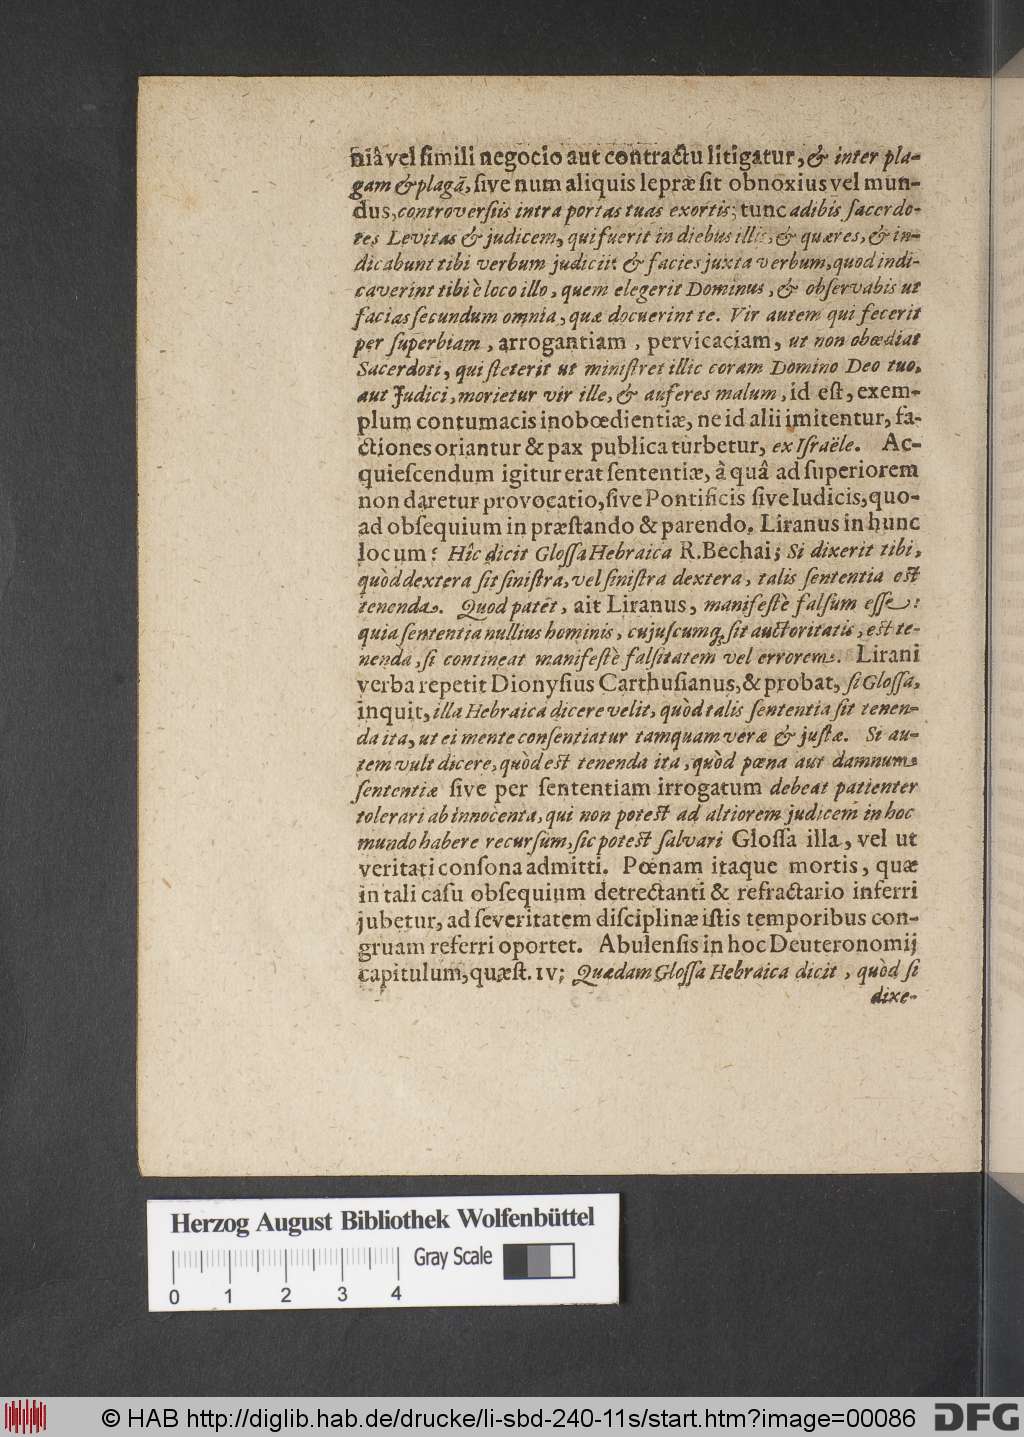 niâ vel ſimili negocio aut contractu litigatur, & inter pla-
gam & plagã, ſive num aliquis lepræ ſit obnoxius vel mun-
dus, controverſiis intra portas tuas exortis; tunc adibis ſacerdo-
tes Levitas & judicem, qui fuerit in diebus illis, & quæres, & in-
dicabunt tibi verbum judicii: & facies juxta verbum, quod indi-
caverint tibi è loco illo, quem elegerit Dominus, & obſervabis ut
facias ſecundum omnia, quæ docuerint te. Vir autem qui fecerit
per ſuperbiam, arrogantiam, pervicaciam, ut non obœdiat
Sacerdoti, qui ſteterit ut miniſtret illic coram Domino Deo tuo,
aut Judici, morietur vir ille, & auferes malum, id eſt, exem-
plum contumacis inobœdientiæ, ne id alii imitentur, fa-
ctiones oriantur & pax publica turbetur, ex Iſraële. Ac-
quieſcendum igitur erat ſententiæ, à quâ ad ſuperiorem
non daretur provocatio, ſive Pontificis ſive Iudicis, quo-
ad obſequium in præſtando & parendo. Liranus in hunc
locum: Hîc dicit Gloſſa Hebraica R. Bechai; Si dixerit tibi,
quòd dextera ſit ſiniſtra, vel ſiniſtra dextera, talis ſententia eſt
tenenda. Quod patet, ait Liranus, manifeſtè falſum eſſe:
quia ſententia nullius hominis, cujuſcumq; ſit auctoritatis, eſt te-
nenda, ſi contineat manifeſtè falſitatem vel errorem. Lirani
verba repetit Dionyſius Carthuſianus, & probat, ſi Gloſſa,
inquit, illa Hebraica dicere velit, quòd talis ſententia ſit tenen-
da ita, ut ei mente conſentiatur tamquam veræ & juſtæ. Si au-
tem vult dicere, quòd eſt tenenda ita, quòd pœna aut damnum
ſententiæ ſive per ſententiam irrogatum debeat patienter
tolerari ab innocenta, qui non poteſt ad altiorem judicem in hoc
mundo habere recurſum, ſic poteſt ſalvari Gloſſa illa, vel ut
veritati conſona admitti. Pœnam itaque mortis, quæ
in tali caſu obſequium detrectanti & refractario inferri
jubetur, ad ſeveritatem diſciplinæ iſtis temporibus con-
gruam referri oportet. Abulenſis in hoc Deuteronomij
capitulum, quæſt. IV; Quædam Gloſſa Hebraica dicit, quòd ſi
dixe-
Herzog August Bibliothek Wolfenbüttel
Gray Scale
0 1 2 3 4
© HAB http://diglib.hab.de/drucke/li-sbd-240-11s/start.htm?image=00086
DFG